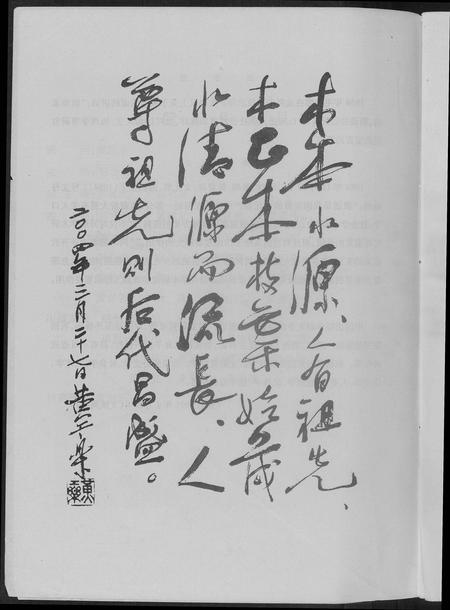 木本水源、人有祖先、
木正本枝葉始茂
水清源而流長、人
尊祖先則后代昌盛。
二〇〇四年二月二十七日